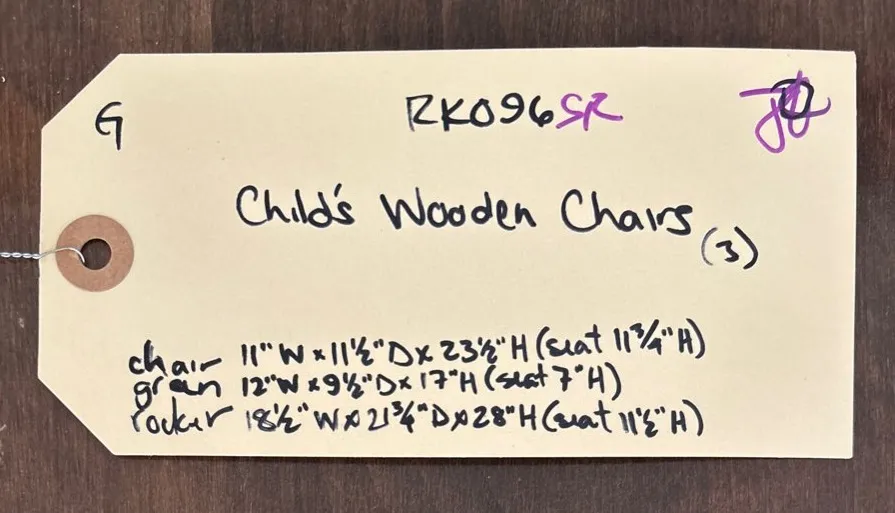 G RK096SR
Child's Wooden Chairs (3)
chair 11" W x 11½" D x 23½" H (seat 11¾" H)
green 12" W x 9½" D x 17" H (seat 7" H)
rocker 18½" W x 21¾" D x 28" H (seat 11½" H)